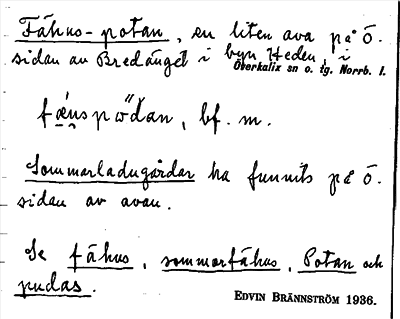 Fähus-potan, en liten ava på Ö.
sidan av Bredänget i byn Heden, i
Överkalix sn o. tg. Norrb. l.
fǽnspωdan, bf. m.
Sommarladugårdar ha funnits på Ö.
sidan av avan.
Se fähus, sommarfähus, Potan och
pudas.
EDVIN BRÄNNSTRÖM 1936.